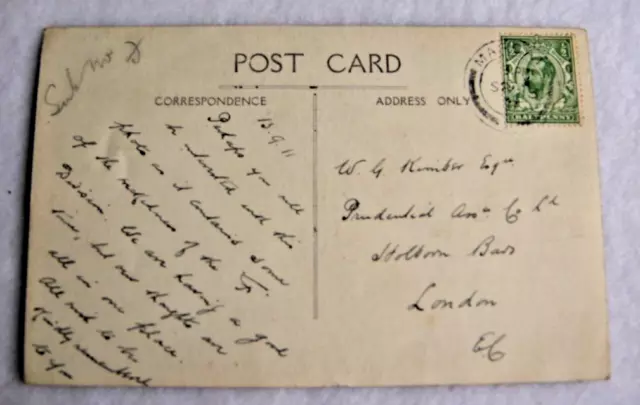 Sub no D
POST CARD
CORRESPONDENCE
ADDRESS ONLY
HALFPENNY
13.9.11
Perhaps you will
be interested with this
photo as it contains some
of the of the
Division. We are having a good
time, but our thoughts are
all in one place.
All wish to be
Kindly remembered
to you
W. G. Kimber Esqre
Prudential Assce Co Ld
Holborn Bars
London
EC